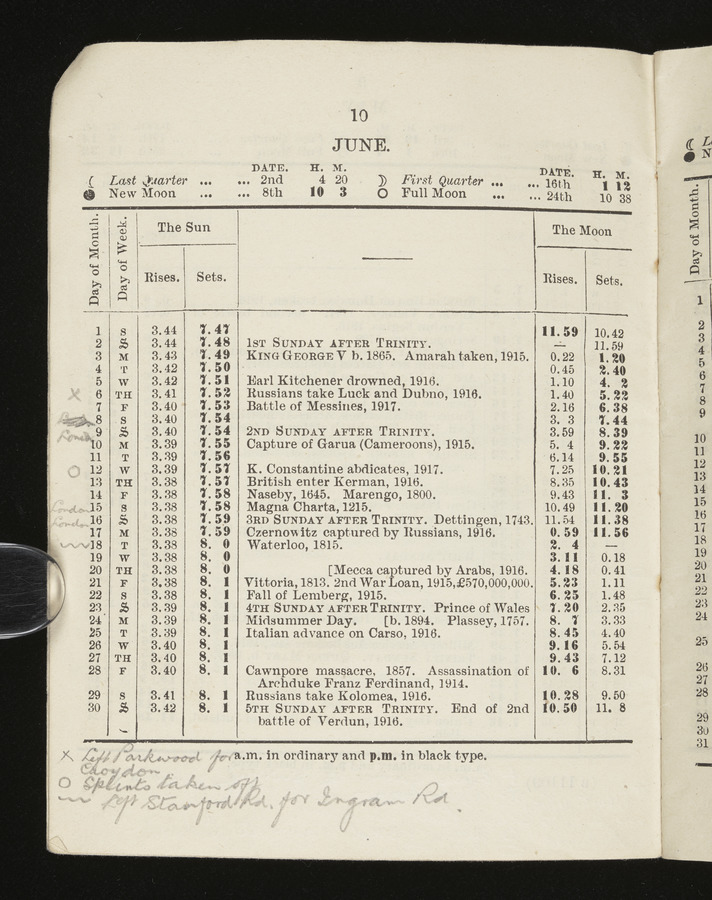 10
JUNE.
DATE. H. M. DATE. H. M.
☾ Last Quarter ... ... 2nd 4 20 ☽ First Quarter ... ... 16th 1 12
● New Moon ... ... 8th 10 3 ○ Full Moon ... ... 24th 10 38
Day of Month. Day of Week. The Sun The Moon
Rises. Sets. Rises. Sets.
1 S 3.44 7.47 11.59 10.42
2 S 3.44 7.48 1ST SUNDAY AFTER TRINITY. — 11.59
3 M 3.43 7.49 KING GEORGE V b. 1865. Amarah taken, 1915. 0.22 1.20
4 T 3.42 7.50 0.45 2.40
5 W 3.42 7.51 Earl Kitchener drowned, 1916. 1.10 4. 2
× 6 TH 3.41 7.52 Russians take Luck and Dubno, 1916. 1.40 5.22
7 F 3.40 7.53 Battle of Messines, 1917. 2.16 6.38
8 S 3.40 7.54 3. 3 7.44
9 S 3.40 7.54 2ND SUNDAY AFTER TRINITY. 3.59 8.39
10 M 3.39 7.55 Capture of Garua (Cameroons), 1915. 5. 4 9.22
11 T 3.39 7.56 6.14 9.55
O 12 W 3.39 7.57 K. Constantine abdicates, 1917. 7.25 10.21
13 TH 3.38 7.57 British enter Kerman, 1916. 8.35 10.43
14 F 3.38 7.58 Naseby, 1645. Marengo, 1800. 9.43 11. 3
London 15 S 3.38 7.58 Magna Charta, 1215. 10.49 11.20
London 16 S 3.38 7.59 3RD SUNDAY AFTER TRINITY. Dettingen, 1743. 11.54 11.38
17 M 3.38 7.59 Czernowitz captured by Russians, 1916. 0.59 11.56
18 T 3.38 8. 0 Waterloo, 1815. 2. 4 —
19 W 3.38 8. 0 3.11 0.18
20 TH 3.38 8. 0 [Mecca captured by Arabs, 1916. 4.18 0.41
21 F 3.38 8. 1 Vittoria, 1813. 2nd War Loan, 1915, £570,000,000. 5.23 1.11
22 S 3.38 8. 1 Fall of Lemberg, 1915. 6.25 1.48
23 S 3.39 8. 1 4TH SUNDAY AFTER TRINITY. Prince of Wales 7.20 2.35
24 M 3.39 8. 1 Midsummer Day. [b. 1894. Plassey, 1757. 8. 7 3.33
25 T 3.39 8. 1 Italian advance on Carso, 1916. 8.45 4.40
26 W 3.40 8. 1 9.16 5.54
27 TH 3.40 8. 1 9.43 7.12
28 F 3.40 8. 1 Cawnpore massacre, 1857. Assassination of 10. 6 8.31
Archduke Franz Ferdinand, 1914.
29 S 3.41 8. 1 Russians take Kolomea, 1916. 10.28 9.50
30 S 3.42 8. 1 5TH SUNDAY AFTER TRINITY. End of 2nd 10.50 11. 8
battle of Verdun, 1916.
a.m. in ordinary and p.m. in black type.
× Left Parkwood for
Croydon
O Splints taken off
Left Stanford Rd. for Ingram Rd.
Day of Month.
1
2
3
4
5
6
7
8
9
10
11
12
13
14
15
16
17
18
19
20
21
22
23
24
25
26
27
28
29
30
31